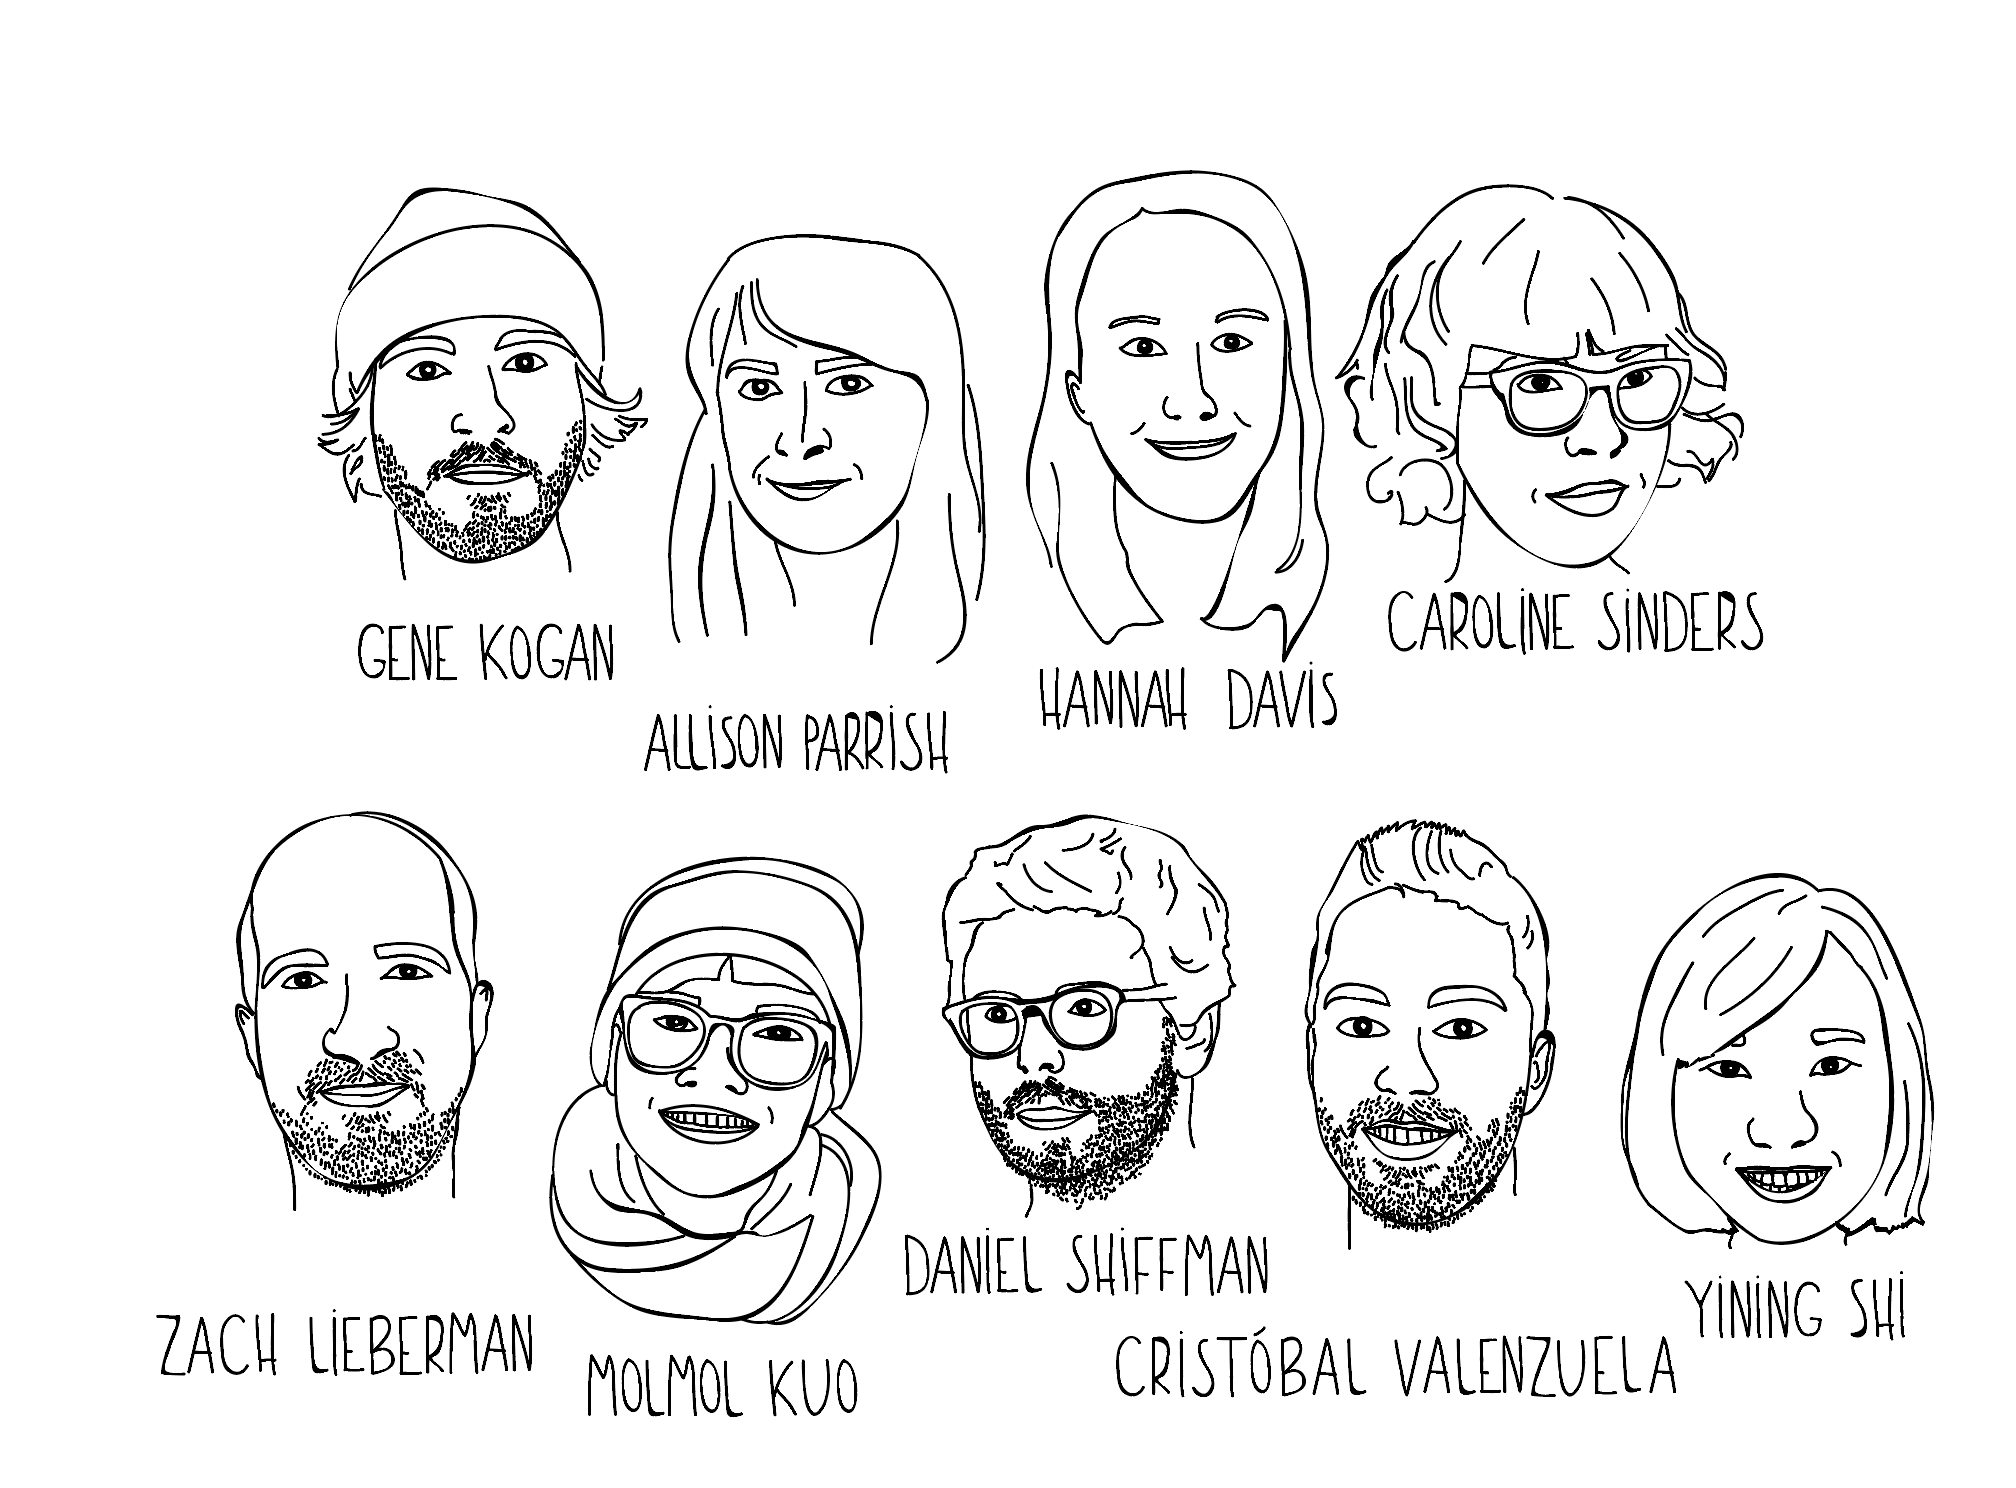 GENE KOGAN
ALLiSON PARRiSH
HANNAH DAViS
CAROLiNE SiNDERS
ZACH LiEBERMAN
MOLMOL KUO
DANiEL SHiFFMAN
CRiSTÓBAL VALENZUELA
YiNiNG SHi